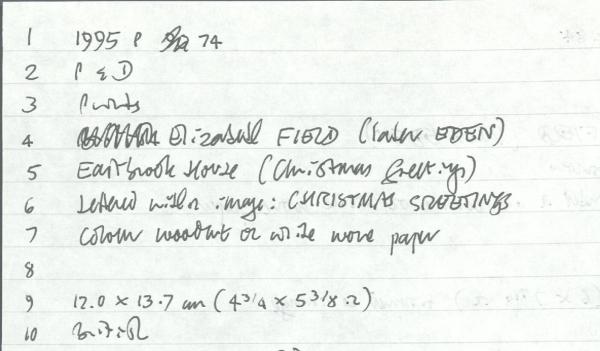 1 1995 P 74
2 P & D
3 Prints
4 Elizabeth FIELD (later EDEN)
5 Eastbrook House (Christmas Greetings)
6 Lettered within image: CHRISTMAS GREETINGS
7 Colour woodcut on white wove paper
8
9 12.0 x 13.7 cm (4 3/4 x 5 3/8 in)
10 British